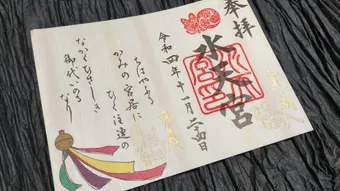 奉拝
水天宮
令和四年十一月二四日
ちはやふる
かみの宮居に
ひく注連の
なかくひさしき
御代いのる
なり